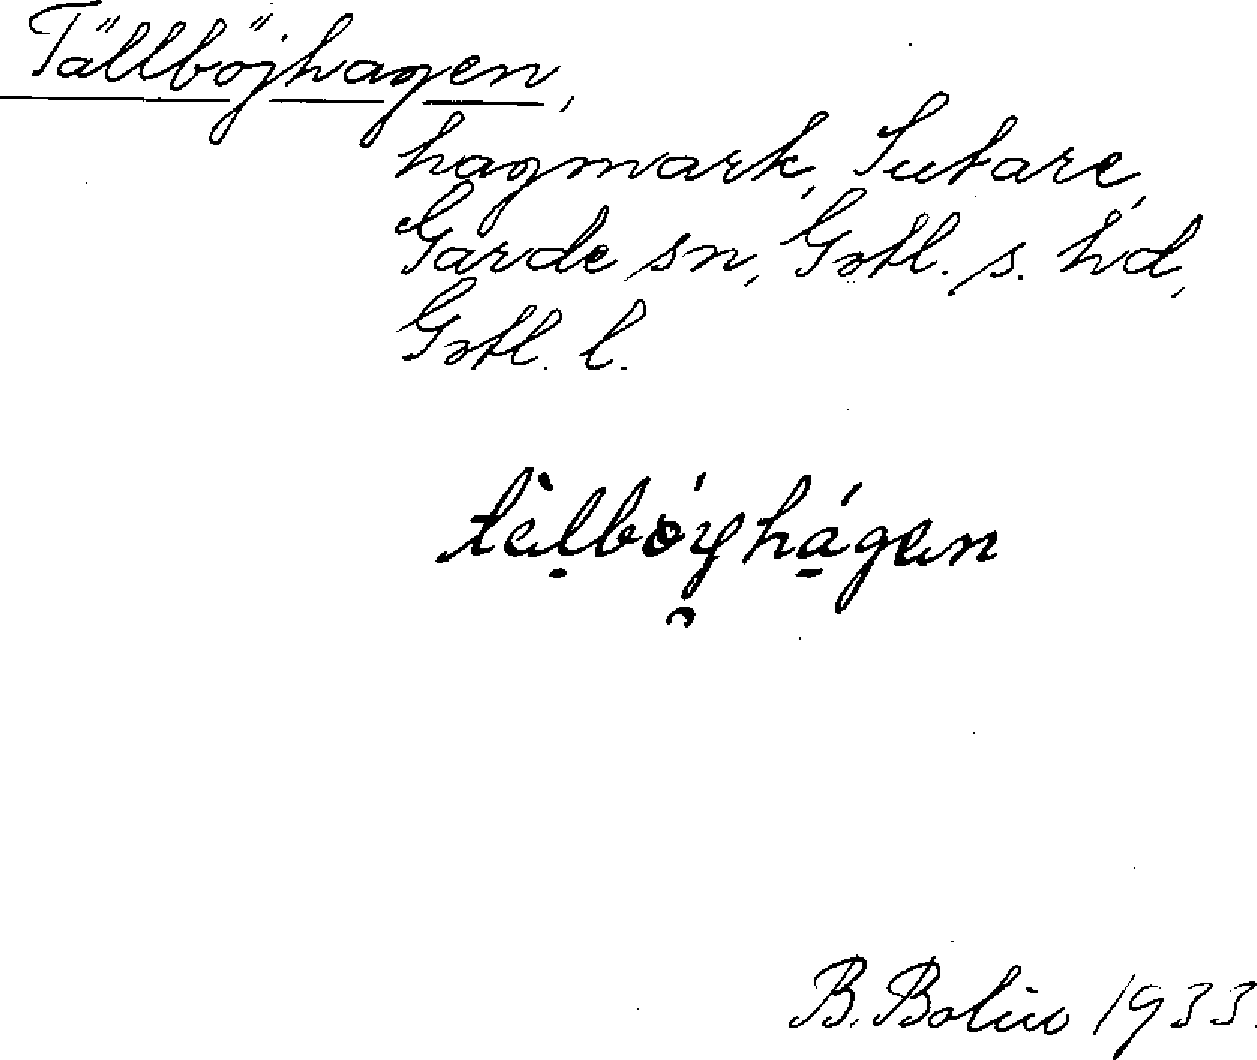 Tällböjhagen,
hagmark, Sutare,
Garde sn, Gotl. s. hd,
Gotl. l.
B. Bolin 1933.